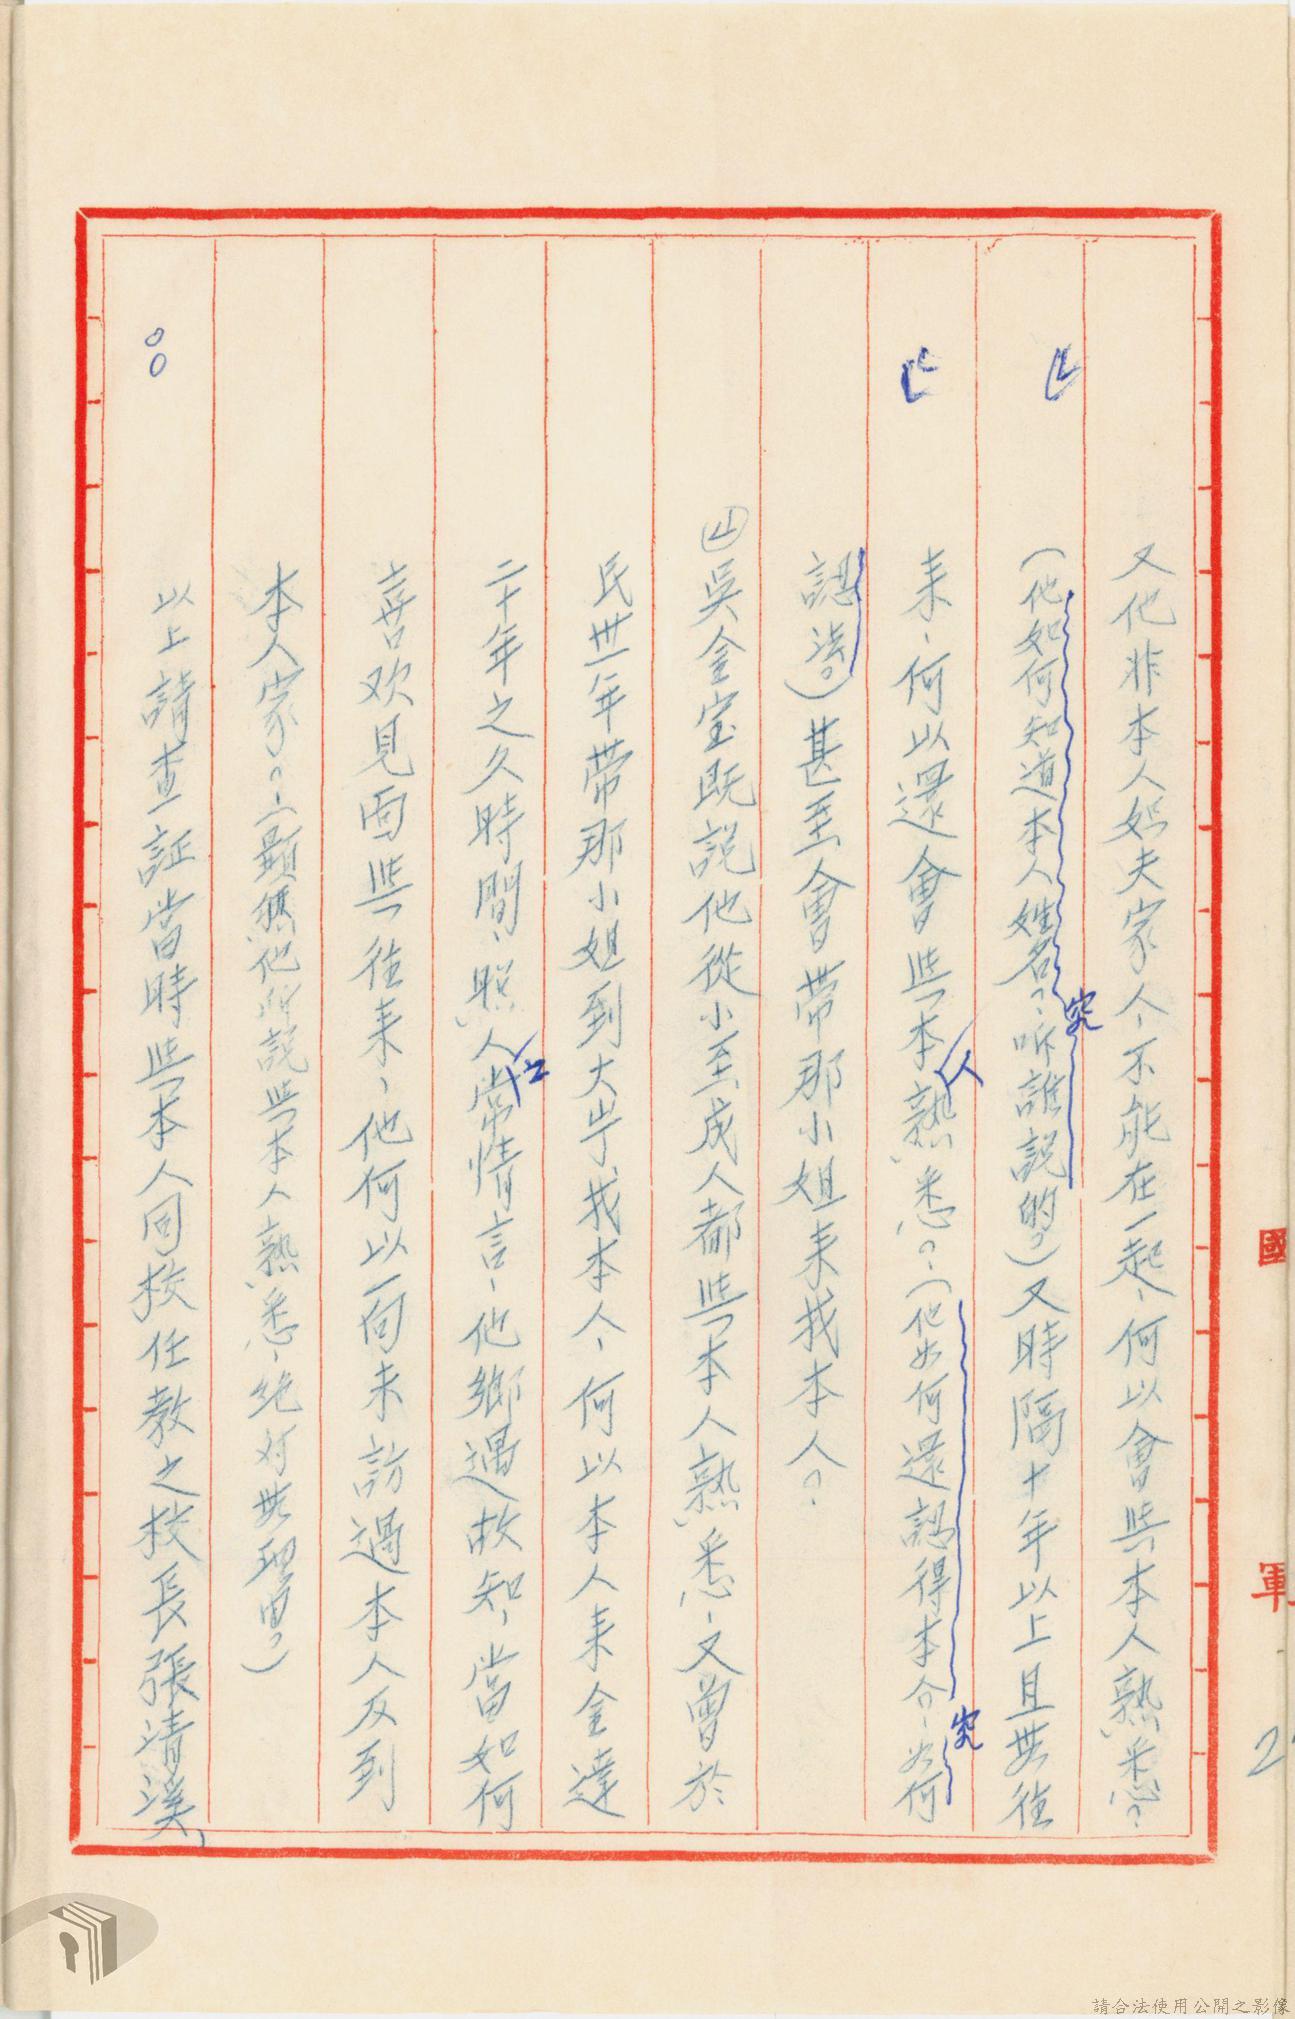 又他非本人姊夫家人、不能在一起、何以會與本人熟悉？
(他如何知道本人姓名？、听誰說的？)又時隔十年以上且無往
究
来、何以還會與本人熟悉？、(他如何還認得本人？、如何
究
認法？)甚至會帶那小姐来找本人？
(4)吳金宝既說他從小至成人都與本人熟悉、又曾於
民卅一年帶那小姐到大宁找本人、何以本人来金達
二十年之久時間、照人之常情言、他鄉遇故知、當如何
喜欢見面與往来、他何以一向未訪過本人及到
本人家？、(顯無他所說與本人熟悉、绝对無理由？)
以上請查証當時與本人同校任教之校長張清溪、
國
軍
2
請合法使用公開之影像